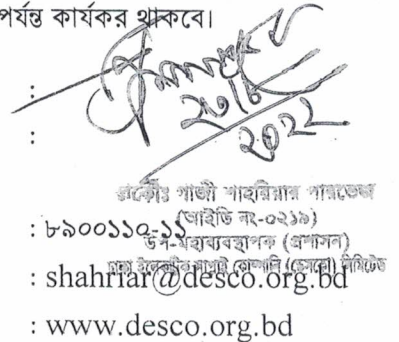 পর্যন্ত কার্যকর থাকবে।
:
:
২০২২
প্রকৌঃ গাজী শাহরিয়ার পারভেজ
(আইডি নং-০২১৯)
: ৮৯০০১১০-১১
উপ-মহাব্যবস্থাপক (প্রশাসন)
ঢাকা ইলেকট্রিক সাপ্লাই কোম্পানি (ডেসকো) লিমিটেড
: shahriar@desco.org.bd
: www.desco.org.bd